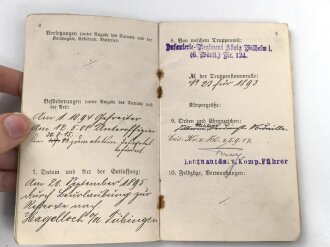 2
Versetzungen (unter Angabe des Datums und der
Kompagnie, Eskadron, Batterie):
Beförderungen (unter Angabe des Datums und der
Art):
Am 1. 10. 94 Gefreiter
Am 12. 5. 01 Unteroffizier
befördert
7. Datum und Art der Entlassung:
Am 20. September 1895
durch Beurlaubung zur
Reserve nach
Hagelloch O/A Tübingen
3
8. Von welchem Truppenteil:
Infanterie-Regiment König Wilhelm I.
(6. Württ.) Nr. 124.
№ der Truppenstammrolle:
1893
Körpergröße:
9. Orden und Ehrenzeichen:
Leutnant u. Komp. Führer
10. Feldzüge, Verwundungen: